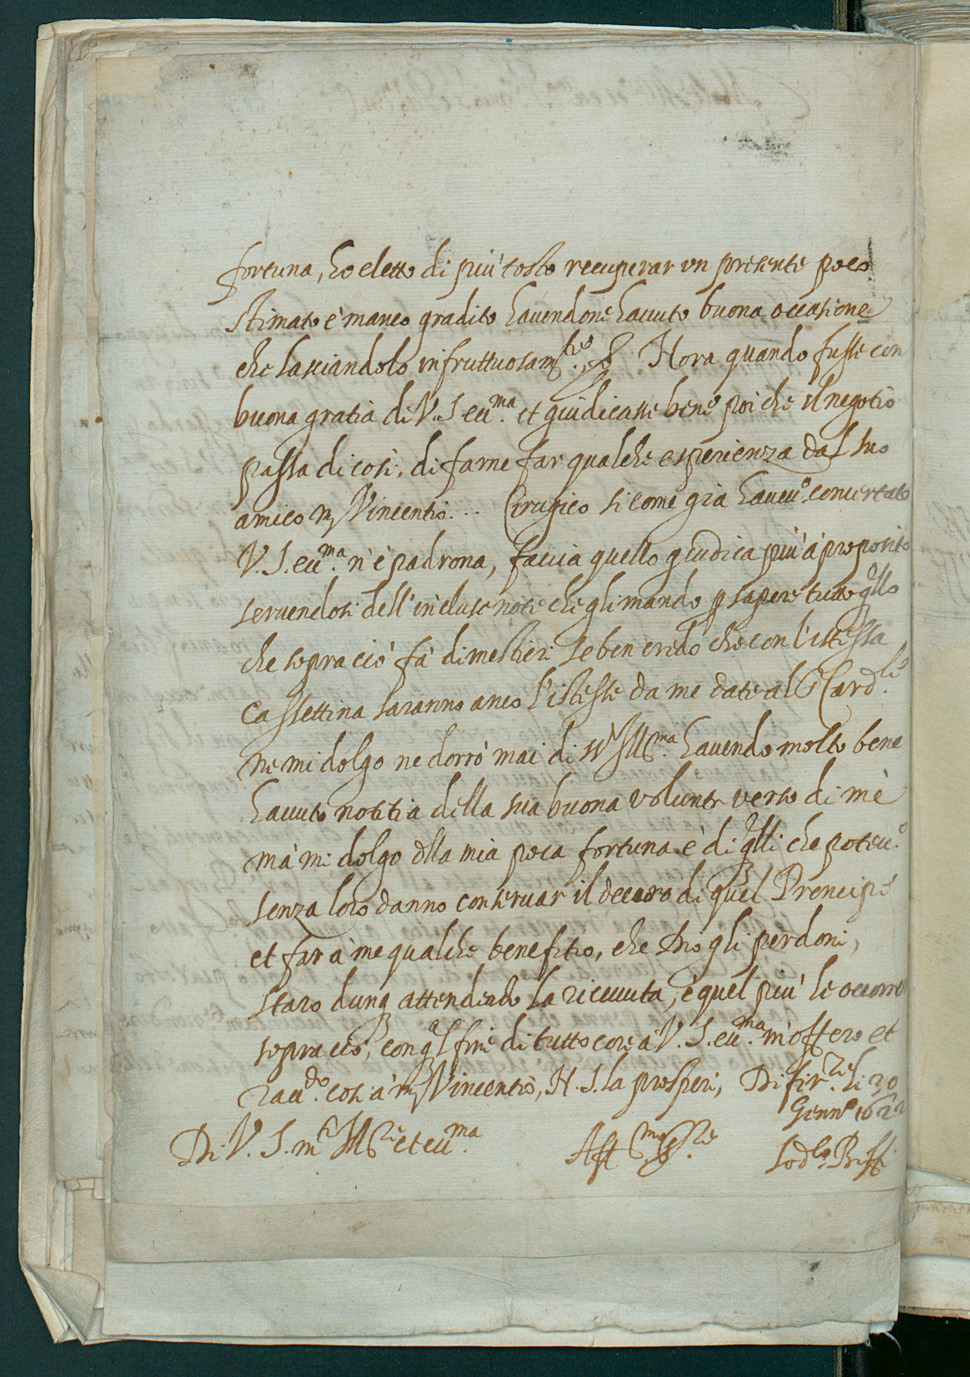 fortuna, ho eletto di piu' tosto recuperar un presente poco
stimato e' manco gradito havendone havuto buona occasione
che lasciandolo infruttuosam.te Hora quando fusse con
buona gratia di V. S. ecc.ma et giudicasse bene poi che il negotio
passa di così, di farne far qualche esperienza dal suo
amico m Vincentio ... Cirugico si come già havevo concertato
V. S. ecc.ma n'è padrona, faccia quello giudica più à proposito
servendosi dell'incluse note che gli mando p sapere tutto qllo
che sopra ciò fà di mestieri se ben credo che con l'istessa
cassettina saranno anco l'istesse da me date al S Card.le
ne mi dolgo ne dorrò mai di Ill.ma havendo molto bene
havuto notitia della sua buona volunta verso di mè
mà mi dolgo dlla mia poca fortuna è di qlli che potev.o
senza loro danno conservar il decoro di quel Prencipe
et far à me qualche benefitio, che Dio gli perdoni,
staro dunq attendendo la ricevuta, è quel più le occorre
sopra ciò, con ql fine di tutto core à V. S. ecc.ma m'offero et
racc.do così à m Vincentio, N. S. la prosperi, Di fir.ze li 30
Genn.o 162
Di V. S. m.to Ill.re et ecc.ma
Aff.mo S.re
Lod.co